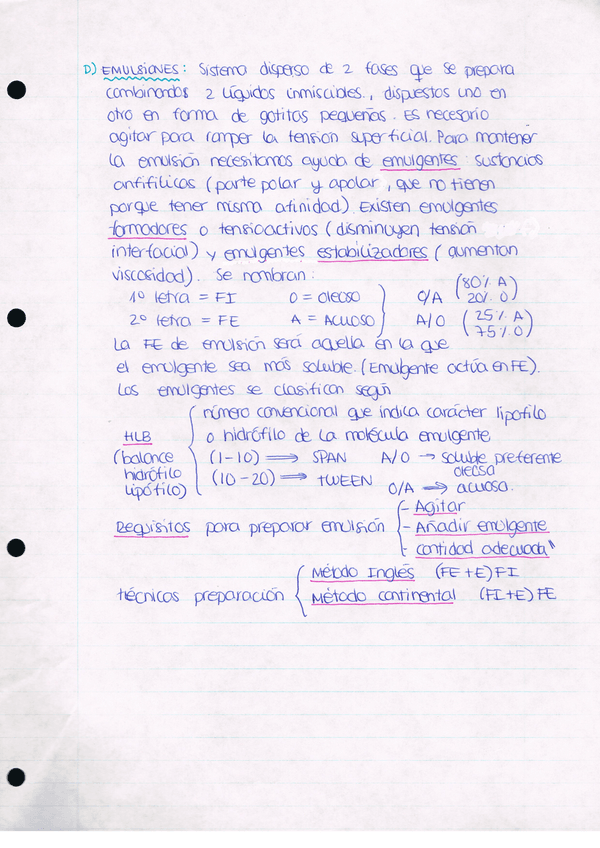 D) EMULSIONES: Sistema disperso de 2 fases que se prepara
combinandos 2 líquidos inmiscibles., dispuestos uno en
otro en forma de gotitas pequeñas. Es necesario
agitar para romper la tensión superficial. Para mantener
la emulsión necesitamos ayuda de emulgentes: sustancias
anfifílicas (parte polar y apolar, que no tienen
porque tener misma afinidad). Existen emulgentes
formadores o tensioactivos (disminuyen tensión
interfacial) y emulgentes estabilizadores (aumentan
viscosidad). Se nombran:
1º letra = FI O = oleoso O/A (80% A 20% O)
2º letra = FE A = Acuoso A/O (25% A 75% O)
La FE de emulsión será aquella en la que
el emulgente sea más soluble. (Emulgente actúa en FE).
Los emulgentes se clasifican según
número convencional que indica carácter lipofilo
HLB o hidrófilo de la molécula emulgente
(balance (1-10) ⟹ SPAN A/O → soluble preferente
hidrófilo oleosa
lipófilo) (10-20) ⟹ TWEEN O/A → acuosa.
- Agitar
Requisitos para preparar emulsión - Añadir emulgente
- cantidad adecuada "
Método Inglés (FE+E)FI
técnicas preparación Método continental (FI+E)FE